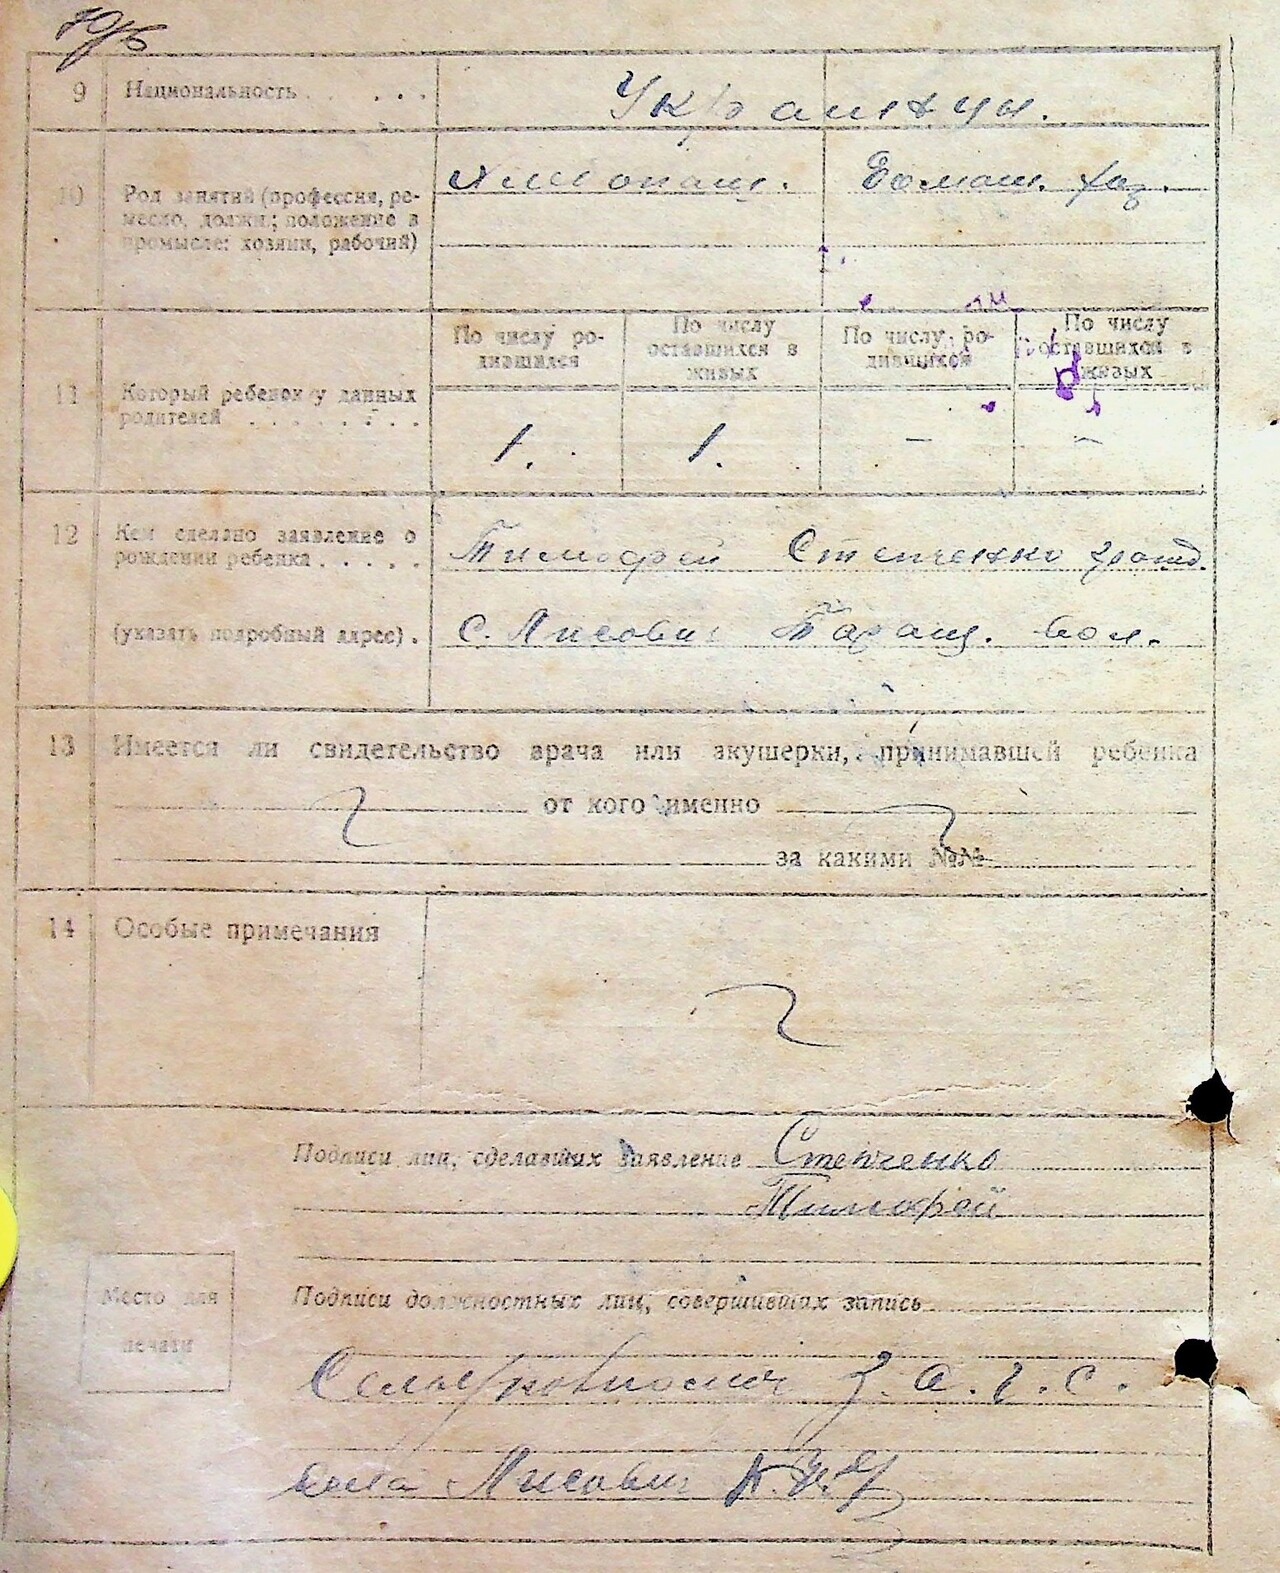 9 Национальность . . . . .
Украинцы.
10 Род занятий (профессия, ре-
месло, должн.; положение в
промысле: хозяин, рабочий)
Домаш. хоз.
По числу ро-
дившихся
По числу
оставшихся в
живых
По числу ро-
дившихся
По числу
оставшихся в
живых
11 Который ребенок у данных
родителей . . . . . . . .
1. 1. – –
12 Кем сделано заявление о
рождении ребенка . . . . .
Тимофей Степченко
(указать подробный адрес) .
с. Лисович Таращ. вол.
13 Имеется ли свидетельство врача или акушерки, принимавшей ребенка
от кого именно
за какими №№
14 Особые примечания
Подписи лиц, сделавших заявление Степченко
Тимофей
Место для
печати
Подписи должностных лиц, совершивших запись
З.А.Г.С.
села Лисович